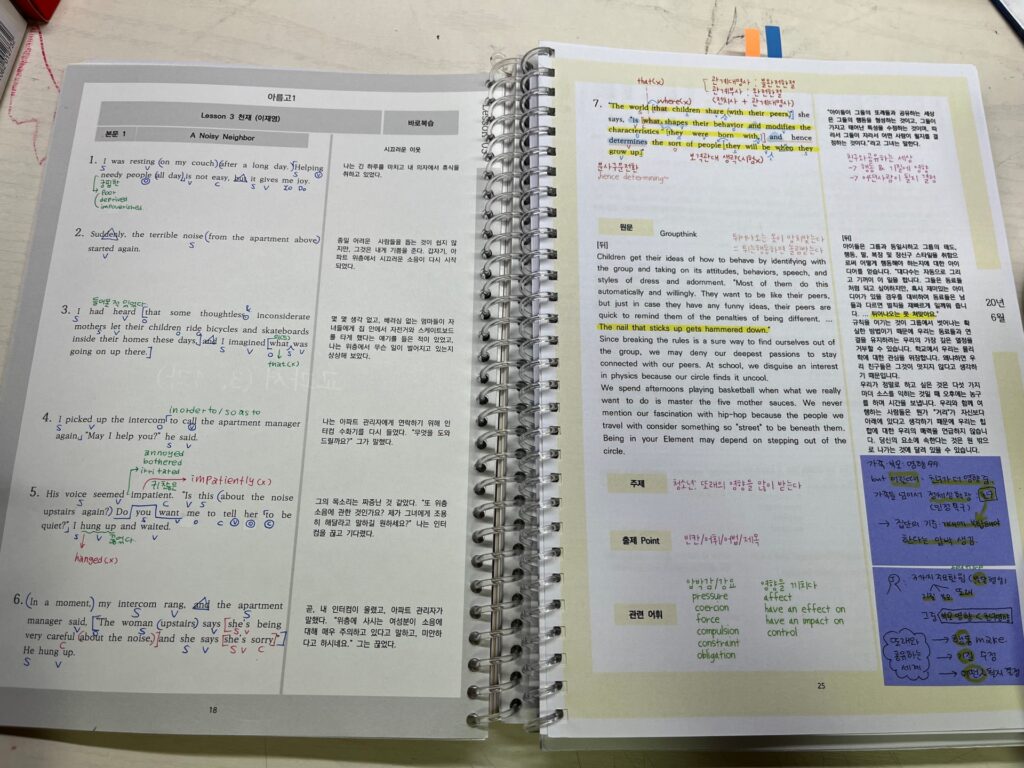 아름고1
Lesson 3 천재 (이재영)
바로복습
본문 1
A Noisy Neighbor
1. I was resting on my couch after a long day. Helping
needy people all day is not easy, but it gives me joy.
poor
deprived
impoverished
나는 긴 하루를 마치고 내 의자에서 휴식을
취하고 있었다.
2. Suddenly, the terrible noise from the apartment above
started again.
종일 어려운 사람들을 돕는 것이 쉽지 않
지만, 그것은 내게 기쁨을 준다. 갑자기, 아
파트 위층에서 시끄러운 소음이 다시 시작
되었다.
들어본 적 있었다
3. I had heard that some thoughtless inconsiderate
mothers let their children ride bicycles and skateboards
inside their homes these days, and I imagined what was
going on up there.
that(x)
몇 몇 생각 없고, 배려심 없는 엄마들이 자
녀들에게 집 안에서 자전거와 스케이트보드
를 타게 했다는 얘기를 들은 적이 있었고,
나는 위층에서 무슨 일이 벌어지고 있는지
상상해 보았다.
in order to / so as to
4. I picked up the intercom to call the apartment manager
again, "May I help you?" he said.
나는 아파트 관리자에게 연락하기 위해 인
터컴 수화기를 다시 들었다. "무엇을 도와
드릴까요?" 그가 말했다.
annoyed
bothered
irritated
impatiently (x)
5. His voice seemed impatient. "Is this about the noise
upstairs again? Do you want me to tell her to be
quiet?" I hung up and waited.
hanged(x)
그의 목소리는 짜증난 것 같았다. "또 위층
소음에 관한 것인가요? 제가 그녀에게 조용
히 해달라고 말하길 원하세요?" 나는 인터
컴을 끊고 기다렸다.
6. In a moment, my intercom rang, and the apartment
manager said, "The woman upstairs says she's being
very careful about the noise, and she says she's sorry."
He hung up.
곧, 내 인터컴이 울렸고, 아파트 관리자가
말했다. "위층에 사시는 여성분이 소음에
대해 매우 주의하고 있다고 말하고, 미안하
다고 하시네요." 그는 끊었다.
18
that(x)
관계대명사 : 불완전한절
관계부사 : 완전한절
where(x) (전치사 + 관계대명사)
7. "The world that children share with their peers," she
says, "is what shapes their behavior and modifies the
characteristics they were born with, and hence
determines the sort of people they will be when they
grow up."
분사구문전환
hence determining~
"아이들이 그들의 또래들과 공유하는 세상
은 그들의 행동을 형성하는 것이고, 그들이
가지고 태어난 특성을 수정하는 것이며, 따
라서 그들이 자라서 어떤 사람이 될지를 결
정하는 것이다."라고 그녀는 말한다.
친구와공유하는 세상
→ 행동 & 기질에 영향
→ 어떤사람이 될지 결정
원문
Groupthink
튀어나오는 못이 망치질받는다
[뒤]
Children get their ideas of how to behave by identifying with
the group and taking on its attitudes, behaviors, speech, and
styles of dress and adornment. "Most of them do this
automatically and willingly. They want to be like their peers,
but just in case they have any funny ideas, their peers are
quick to remind them of the penalties of being different. …
The nail that sticks up gets hammered down."
Since breaking the rules is a sure way to find ourselves out of
the group, we may deny our deepest passions to stay
connected with our peers. At school, we disguise an interest
in physics because our circle finds it uncool.
We spend afternoons playing basketball when what we really
want to do is master the five mother sauces. We never
mention our fascination with hip-hop because the people we
travel with consider something so "street" to be beneath them.
Being in your Element may depend on stepping out of the
circle.
[뒤]
아이들은 그룹과 동일시하고 그들의 태도,
행동, 말, 복장 및 장신구 스타일을 취함으
로써 어떻게 행동해야 하는지에 대한 아이
디어를 얻습니다. "대다수는 자동으로 그리
고 기꺼이 이 일을 합니다. 그들은 동료들
처럼 되고 싶어하지만, 혹시 재미있는 아이
디어가 있을 경우를 대비하여 동료들은 남
들과 다르면 벌칙을 재빠르게 일깨워 줍니
다. … 튀어나오는 못 쳐맞아요."
규칙을 어기는 것이 그룹에서 벗어나는 확
실한 방법이기 때문에 우리는 동료들과 연
결을 유지하려는 우리의 가장 깊은 열정을
거부할 수 있습니다. 학교에서 우리는 물리
학에 대한 관심을 위장합니다. 왜냐하면 우
리 친구들은 그것이 멋지지 않다고 생각하
기 때문입니다.
우리가 정말로 하고 싶은 것은 다섯 가지
마더 소스를 익히는 것일 때 오후에는 농구
를 하며 시간을 보냅니다. 우리와 함께 여
행하는 사람들은 뭔가 "거리"가 자신보다
아래에 있다고 생각하기 때문에 우리는 힙
합에 대한 우리의 매력을 언급하지 않습니
다. 당신의 요소에 속한다는 것은 원 밖으
로 나가는 것에 달려 있을 수 있습니다.
20년
6월
주제
청소년: 또래의 영향을 많이 받는다
출제 Point
빈칸/어휘/어법/제목
관련 어휘
압박감/강요
pressure
coercion
force
compulsion
constraint
obligation
영향을 끼치다
affect
have an effect on
have an impact on
control
또래와
공유하는
세계
→ 행동 make
→ 기질 수정
25